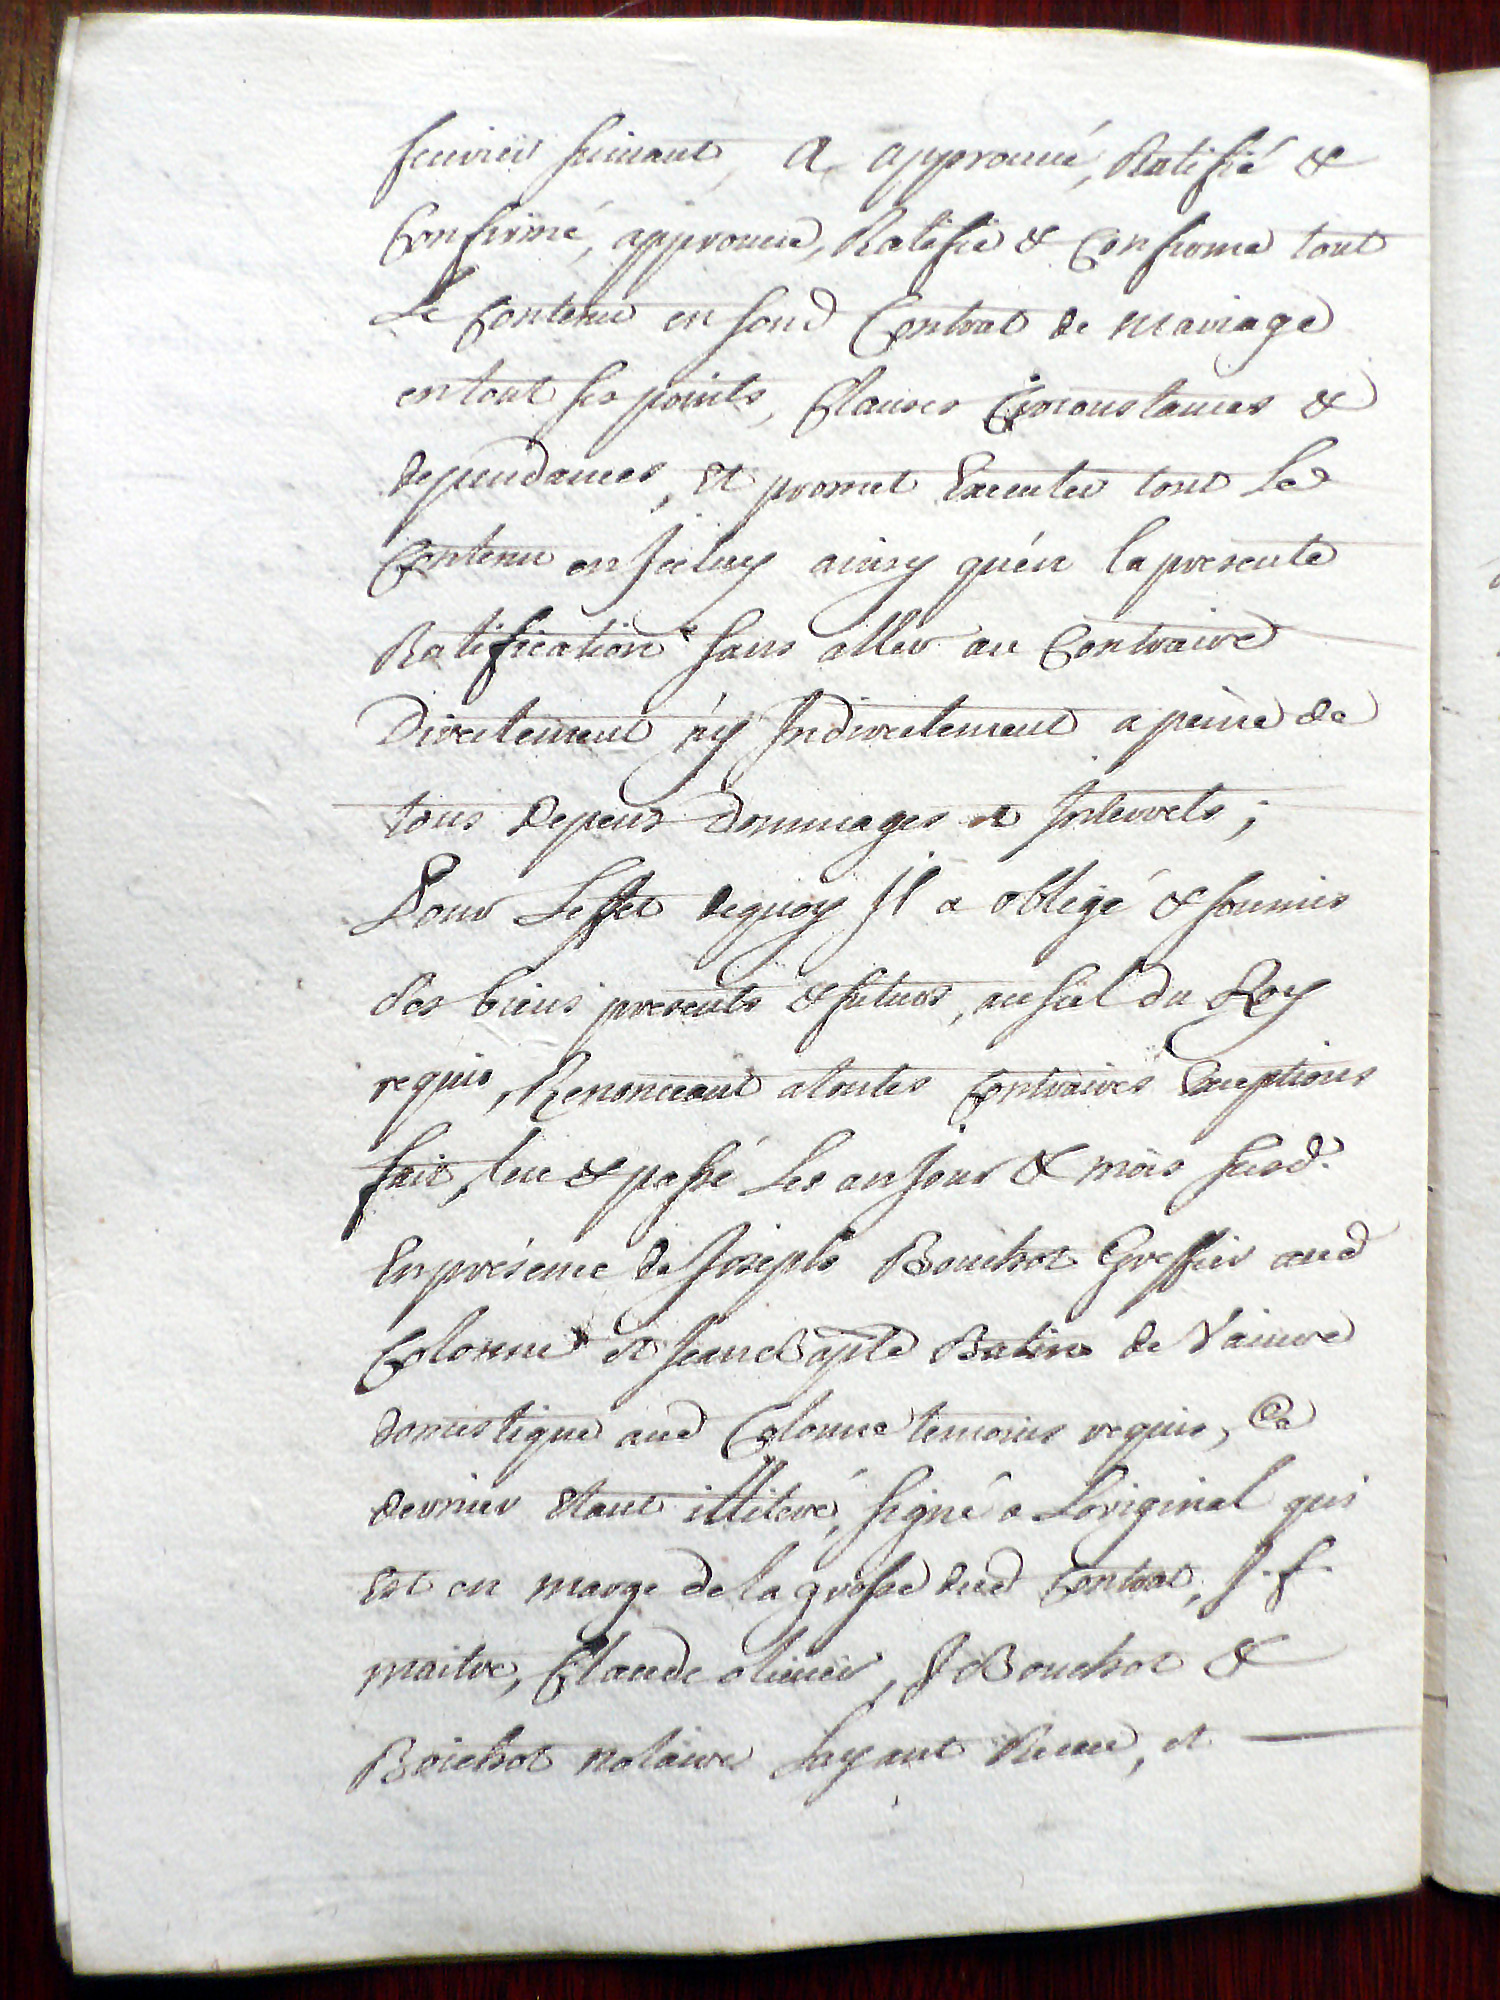 fevrier suivant, A approuvé, Ratifié &
Confirmé, approuve, Ratifie & Confirme tout
Le Contenu en sond Contrat de mariage
en tout ses points, Clauses Circonstances &
dependances, Et promet Executer tout Le
Contenu en Jceluy ainsy qu'en la presente
Ratification sans aller au Contraire
Directement n'y Indirectement a peine de
tous depens dommages et Interrets;
Pour Leffet dequoy Jl a obligé & soumis
ses biens presents & futurs, au scel du Roy
requis, Renonceant a toutes Contraires Exceptions
fait, lu & passé Les an Jour & mois susd.
En présence de Joseph Bouchot Greffier aud
Colonne et Jean Bapte Batin de Vaivre
domestique aud Colonne temoins requis, Ce
dernier Etant illiteré, signé a Loriginal qui
Est en marge de la grosse dud Contrat, J. f.
maitre, Claude olivier, J Bouchot &
Boichot notaire Layant Receu, et